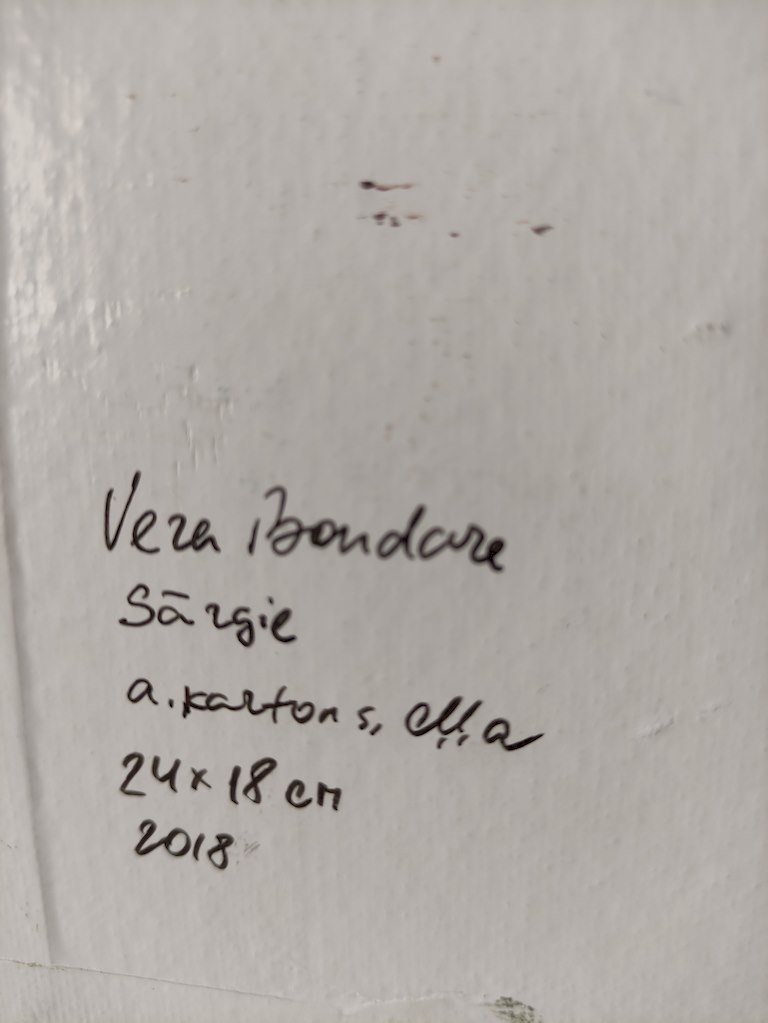 Vera Bondare
Sārgie
a. kartons, eļļa
24 x 18 cm
2018